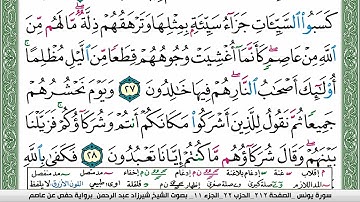 كَسَبُوا۟ ٱلسَّيِّـَٔاتِ جَزَآءُ سَيِّئَةٍۭ بِمِثْلِهَا وَتَرْهَقُهُمْ ذِلَّةٌ ۖ مَّا لَهُم مِّنَ
ٱللَّهِ مِنْ عَاصِمٍ ۖ كَأَنَّمَآ أُغْشِيَتْ وُجُوهُهُمْ قِطَعًا مِّنَ ٱلَّيْلِ مُظْلِمًا ۚ
أُو۟لَـٰٓئِكَ أَصْحَـٰبُ ٱلنَّارِ ۖ هُمْ فِيهَا خَـٰلِدُونَ ٢٧ وَيَوْمَ نَحْشُرُهُمْ
جَمِيعًا ثُمَّ نَقُولُ لِلَّذِينَ أَشْرَكُوا۟ مَكَانَكُمْ أَنتُمْ وَشُرَكَآؤُكُمْ ۚ فَزَيَّلْنَا
بَيْنَهُمْ ۖ وَقَالَ شُرَكَآؤُهُم مَّا كُنتُمْ إِيَّانَا تَعْبُدُونَ ٢٨ فَكَفَىٰ بِٱللَّهِ
سورة يونس _ الصفحة ٢١٢ _ الحزب ٢٢ _ الجزء ١١ _ بصوت الشيخ شيرزاد عبد الرحمن _ برواية حفص عن عاصم